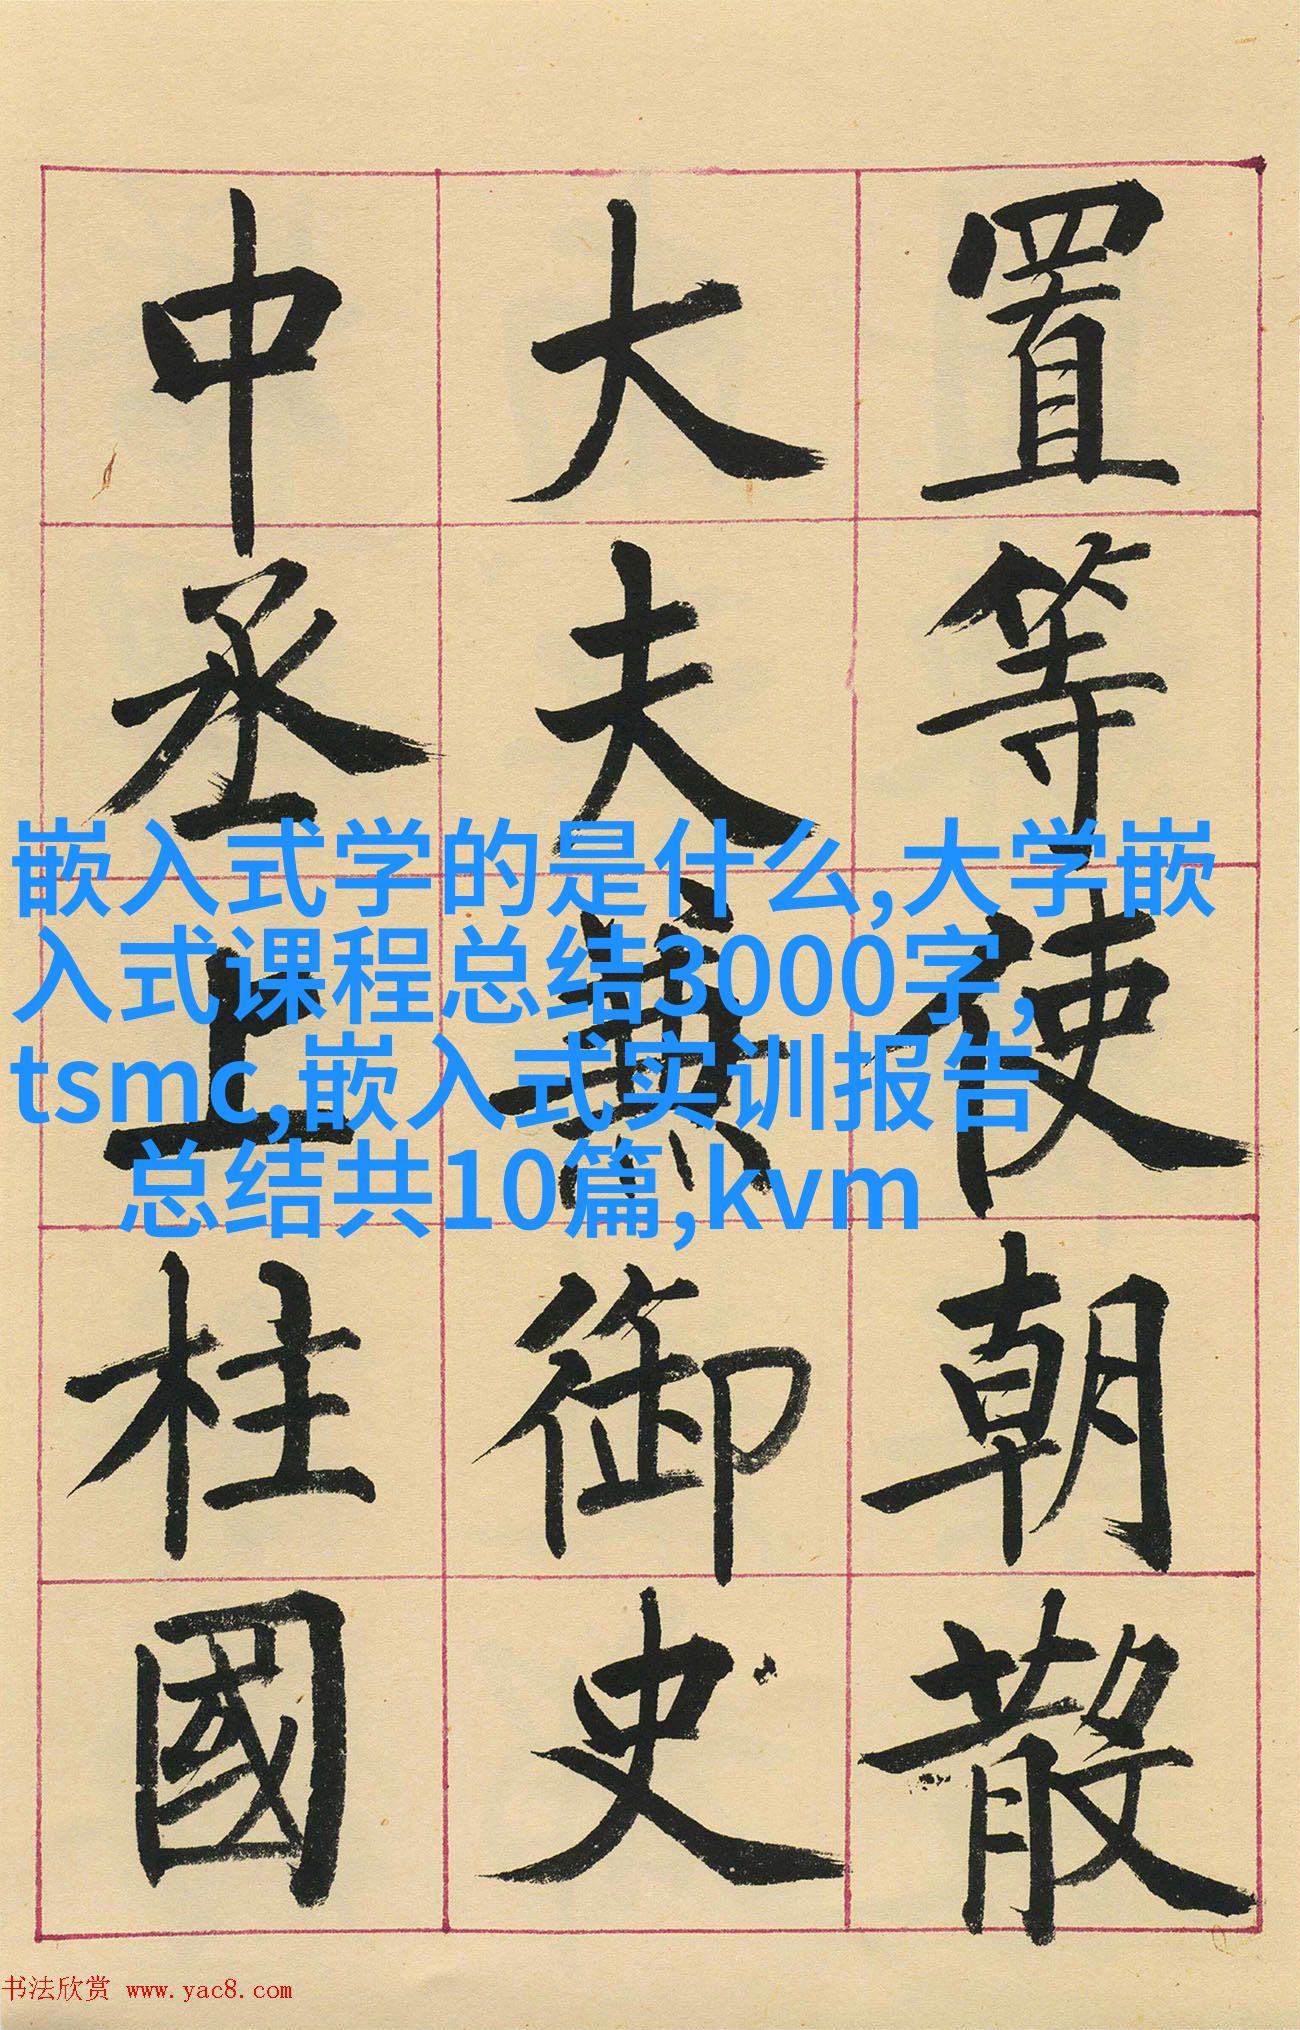 置等使朝散
大夫兼御史
中丞上柱國
嵌入式学的是什么,大学嵌
入式课程总结3000字,
tsmc,嵌入式实训报告
总结共10篇,kvm
书法欣赏 www.yac8.com